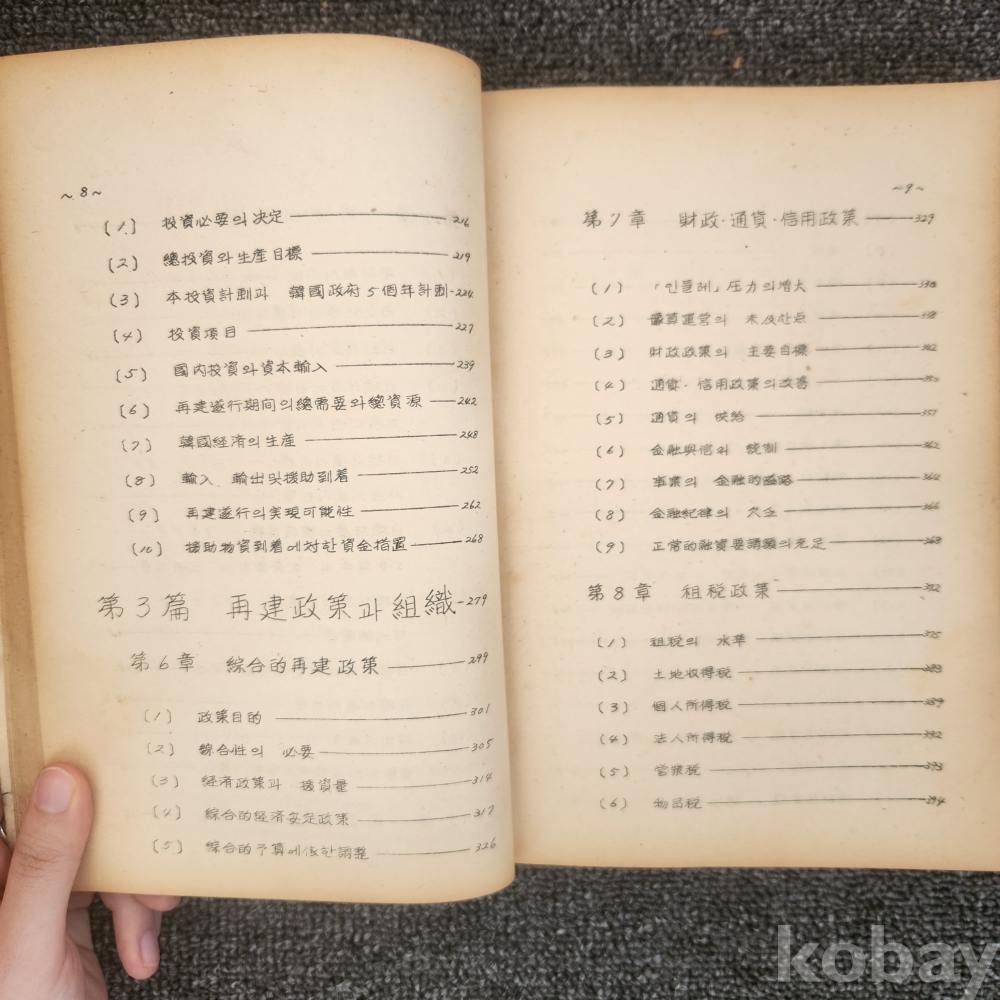 ~8~
(1) 投資必要의 决定 216
(2) 總投資와 生產目標 219
(3) 本投資計劃과 韓國政府 5個年計劃 224
(4) 投資項目 227
(5) 國內投資와 資本輸入 239
(6) 再建遂行期间의 總需要와 總資源 242
(7) 韓國経済의 生産 248
(8) 輸入、輸出 및 援助到着 252
(9) 再建遂行의 実現可能性 262
(10) 援助物資到着에 対한 資金措置 268
第3篇 再建政策과 組織 279
第6章 綜合的 再建政策 299
(1) 政策目的 301
(2) 綜合性의 必要 305
(3) 経済政策과 投資量 314
(4) 綜合的 経済安定政策 317
(5) 綜合的 予算에 依한 調整 326
~9~
第7章 財政·通貨·信用政策 329
(1) 「인플레」圧力의 増大
(2) 予算運営의
(3) 財政政策의 主要目標 342
(4) 通貨·信用政策의 改善 350
(5) 通貨의 供給 357
(6) 金融與信의 統制 362
(7) 事業의 金融的 364
(8) 金融紀律의 欠乏 366
(9) 正常的 融資要請額의 充足 368
第8章 租税政策 372
(1) 租税의 水準 375
(2) 土地收得税 383
(3) 個人所得税 389
(4) 法人所得税 392
(5) 営業税 393
(6) 物品税 394
kobay